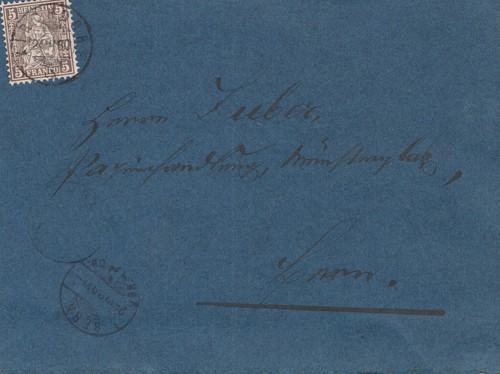 5 HELVETIA 5
5 FRANCO 5
Herrn Huber,
Papierhandlung, Münsterplatz,
Bern.
BERN